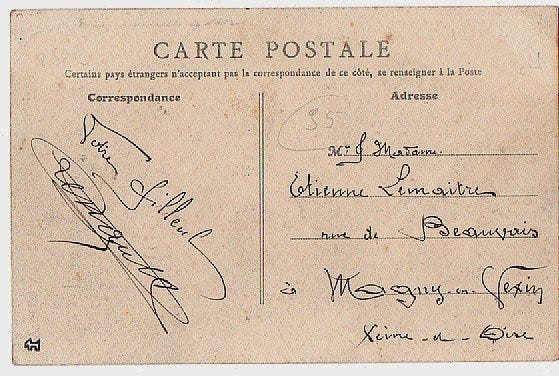 CARTE POSTALE
Certains pays étrangers n'acceptant pas la correspondance de ce côté, se renseigner à la Poste
Correspondance
Adresse
95
Votre filleul
Mr & Madame
Etienne Lemaitre
rue de Beauvais
à Magny-en-Vexin
Seine-et-Oise